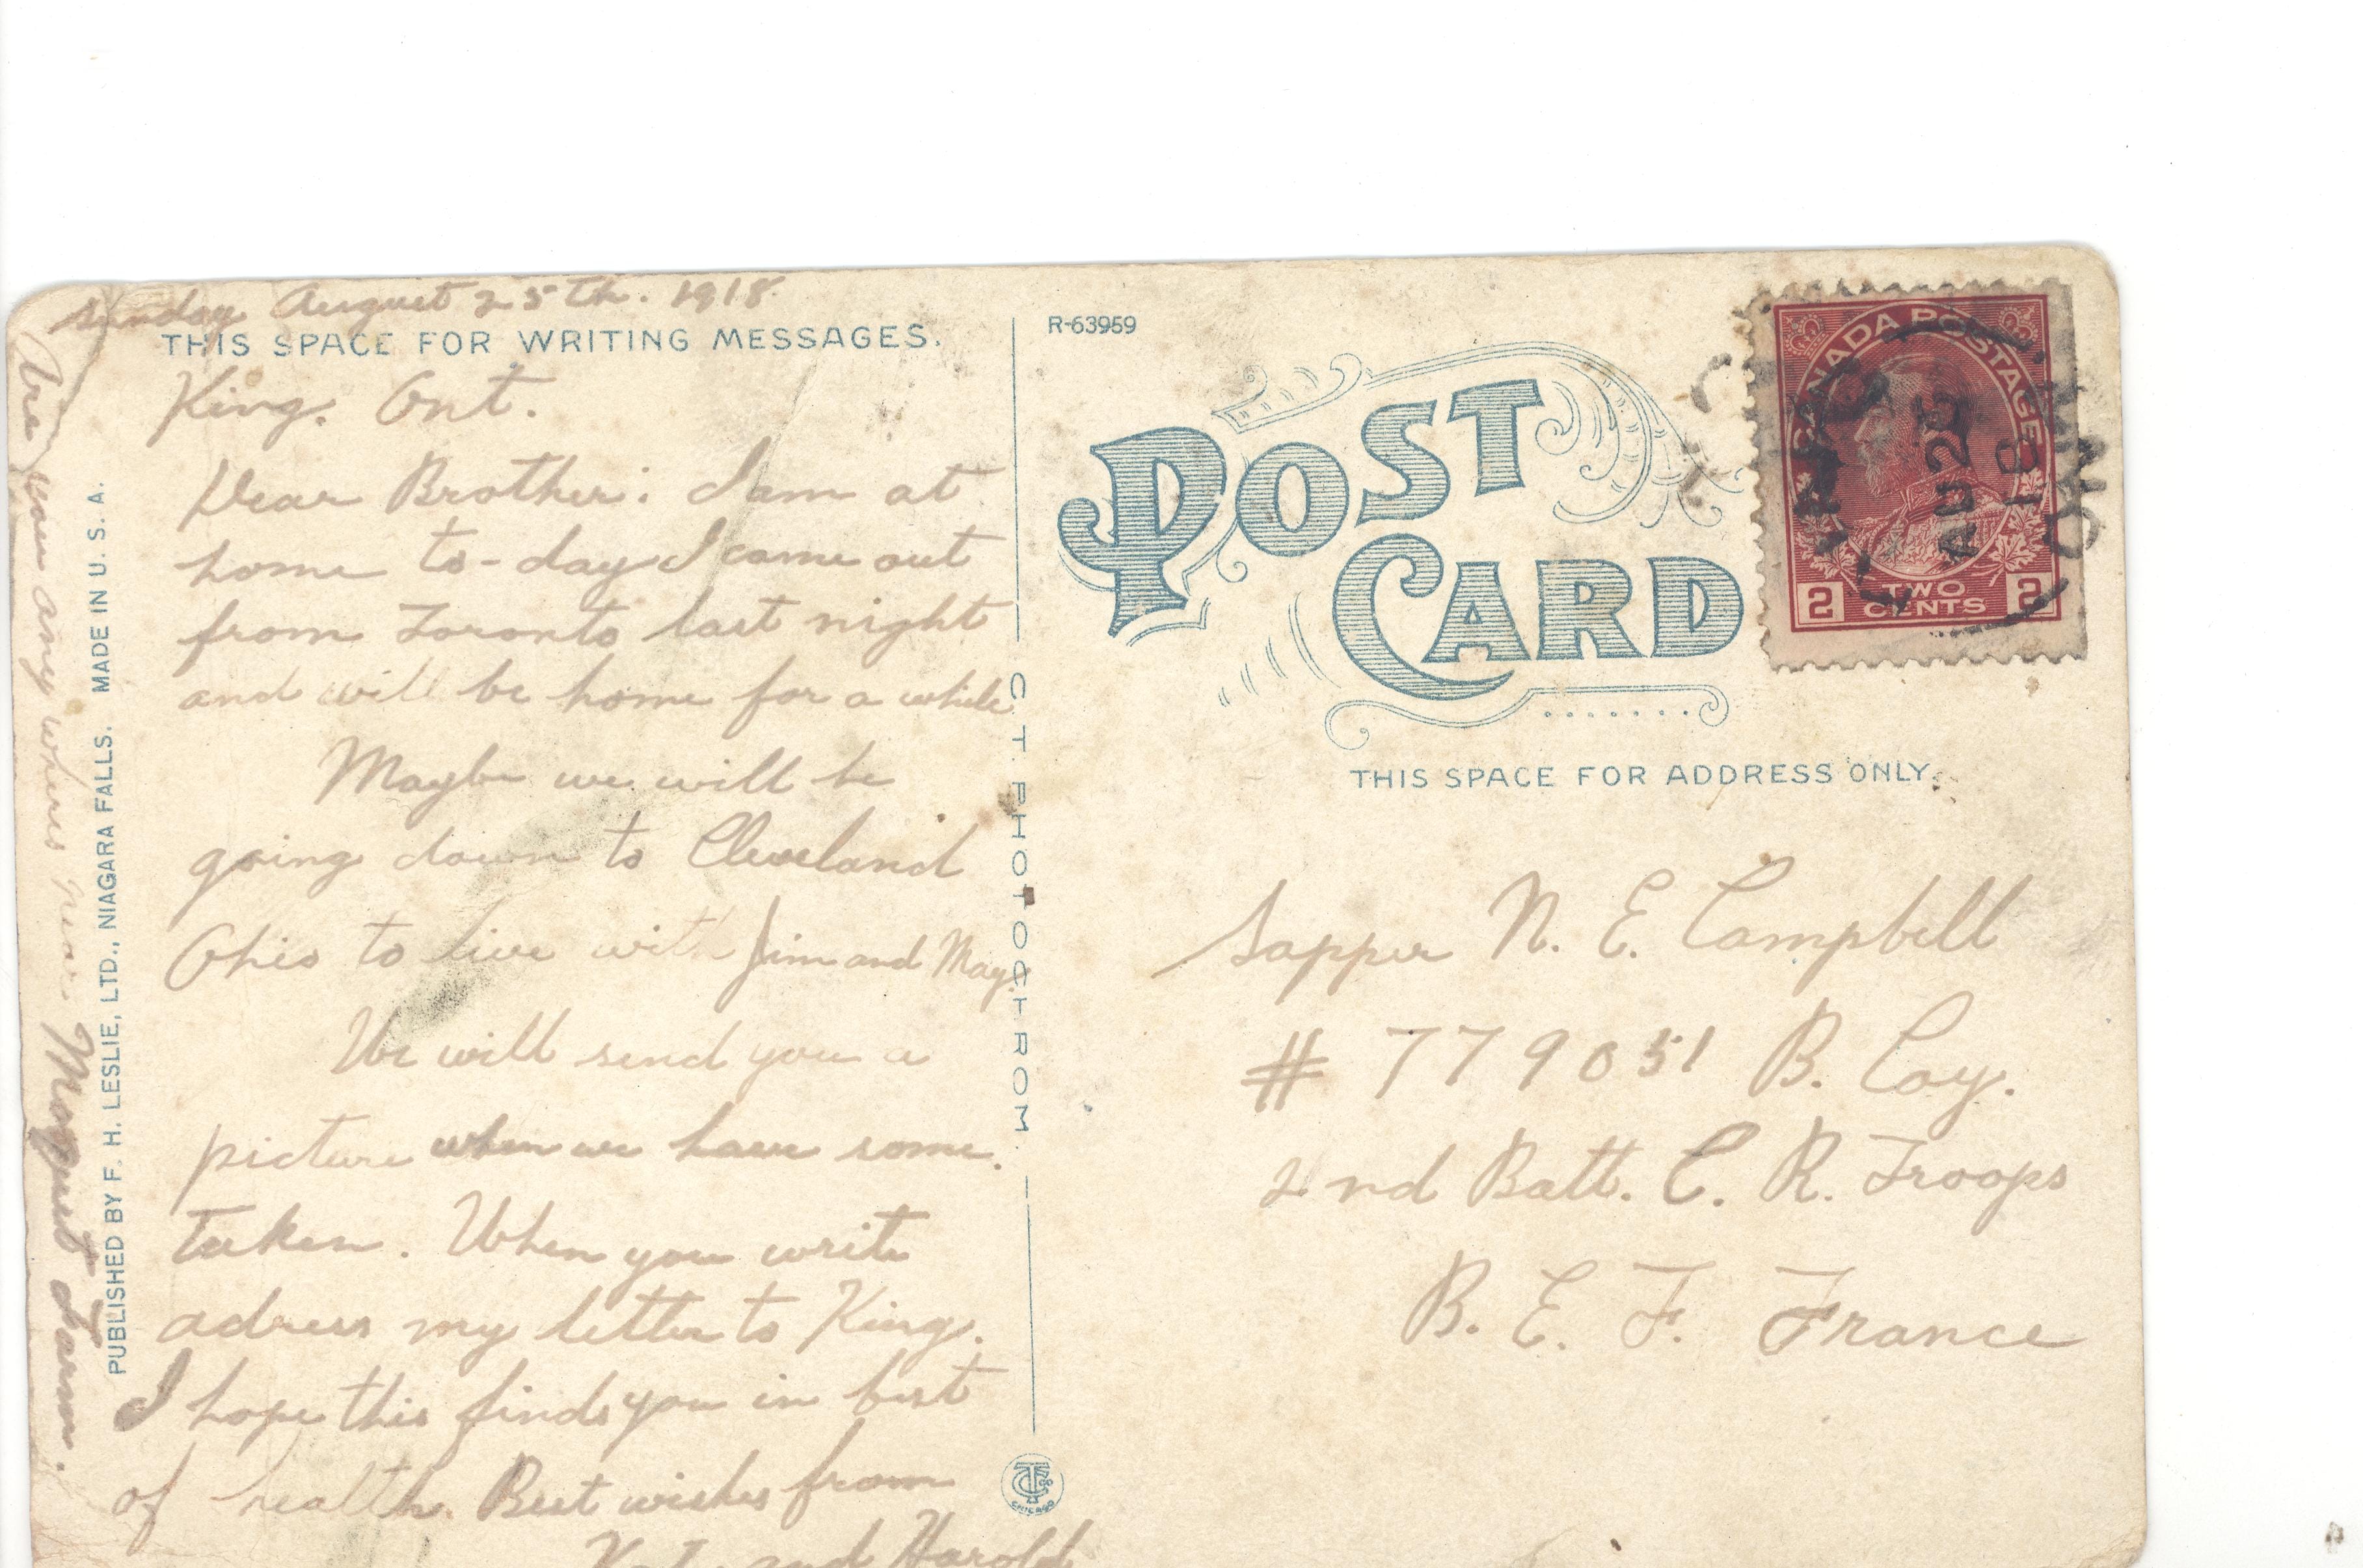 Sunday August 25th. 1918.
THIS SPACE FOR WRITING MESSAGES.
King. Ont.
Dear Brother: I am at
home to-day I came out
from Toronto last night
and will be home for a while
Maybe we will be
going down to Cleveland
Ohio to live with Jim and May.
We will send you a
picture when we have some.
taken. When you write
adress my letter to King.
I hope this finds you in best
of health. Best wishes from
and Harold
Are you any where near Farm.
PUBLISHED BY F. H. LESLIE, LTD., NIAGARA FALLS. MADE IN U. S. A.
C. T. PHOTOCHROM.
CHICAGO
R-63959
POST
CARD
CANADA POSTAGE
AU 25
18
ONT
2 TWO 2
CENTS
THIS SPACE FOR ADDRESS ONLY.
Sapper N. E. Campbell
# 779051 B. Coy.
2nd Batt. C. R. Troops
B. E. F. France